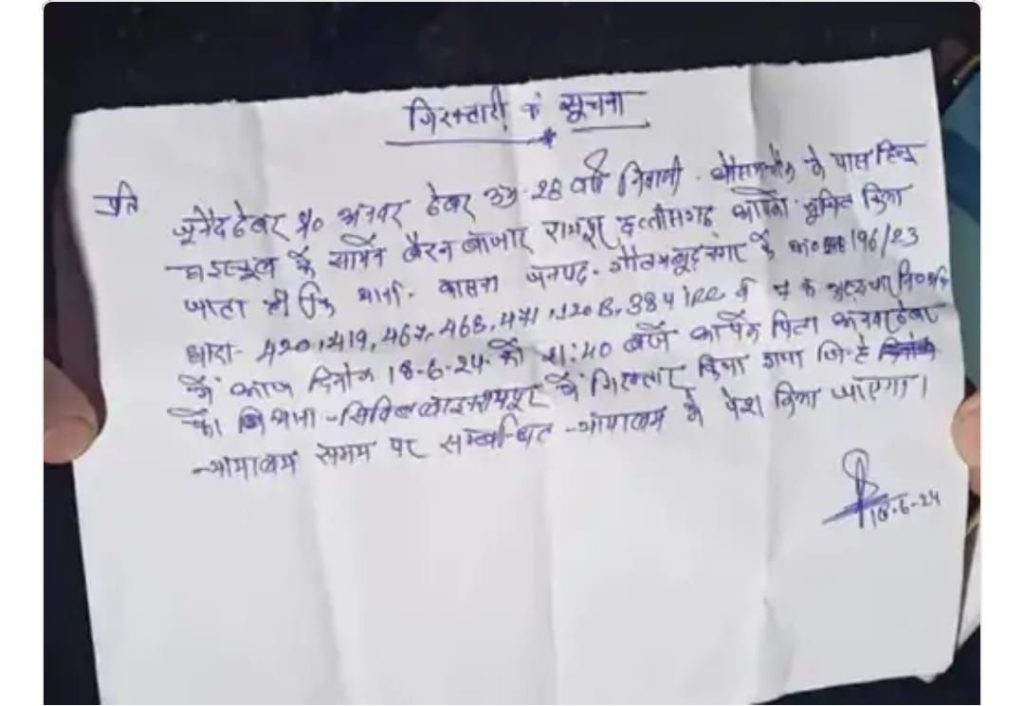 गिरफ्तारी के सूचना
प्रति
जुनैद ढेबर S/o अनवर ढेबर उम्र-28 वर्ष निवासी के पास हिन्द
हाईस्कूल के सामने बैरन बाजार रायपुर छत्तीसगढ़ आपको सूचित किया
जाता है कि थाना- कासना जनपद- गौतमबुद्धनगर के 196/23
धारा- 420, 419, 467, 468, 471, 120B, 384 IPC
आज दिनांक 18-6-24 को 21:40 बजे आपके पिता अनवर ढेबर
थाना-सिविल से गिरफ्तार किया गया जिन्हे
न्यायालय समय पर सम्बन्धित न्यायालय में पेश किया जाएगा।
18-6-24